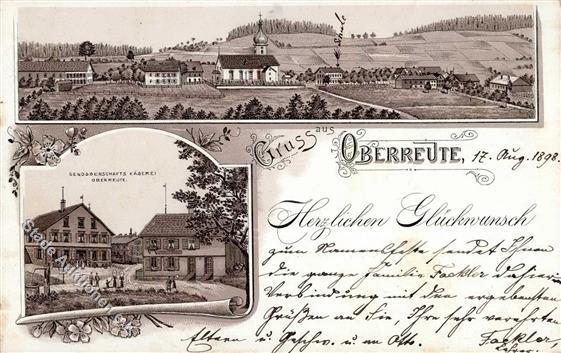 Schule
Gruss aus
OBERREUTE, 17. Aug. 1898.
GENOSSENSCHAFTS KÄSEREI
OBERREUTE.
Herzlichen Glückwunsch
zum Namensfeste sendet Ihnen
die ganze Familie Fackler dahier in
Verbindung mit den ergebensten
Grüßen an Sie, Ihre sehr verehrten
Eltern u. Geschw. u. an Otto. Fackler,
Lehrer.
Stade Auktionen